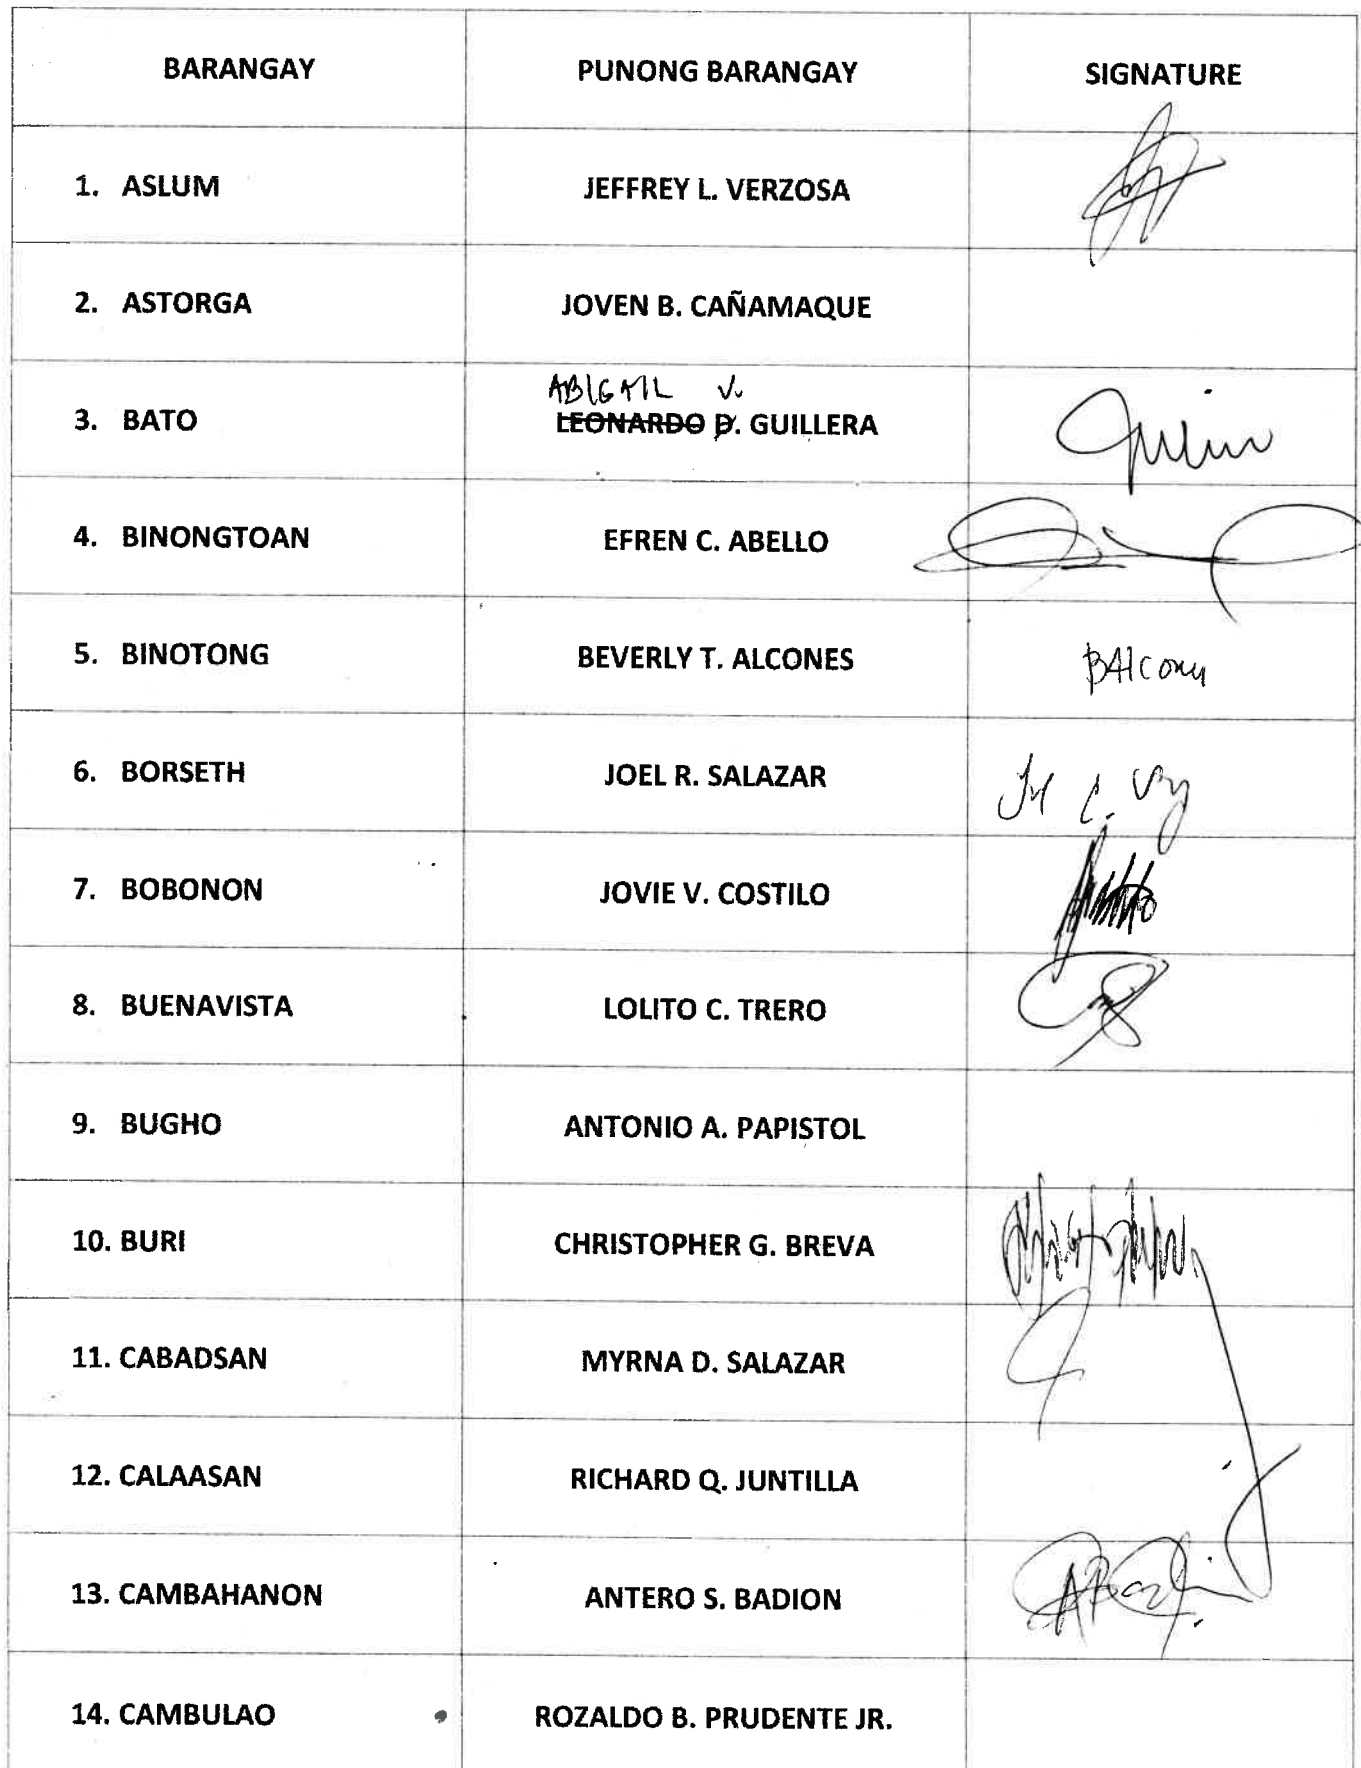 BARANGAY PUNONG BARANGAY SIGNATURE
1. ASLUM JEFFREY L. VERZOSA
2. ASTORGA JOVEN B. CAÑAMAQUE
ABIGAIL V.
3. BATO LEONARDO D. GUILLERA
4. BINONGTOAN EFREN C. ABELLO
5. BINOTONG BEVERLY T. ALCONES
6. BORSETH JOEL R. SALAZAR
7. BOBONON JOVIE V. COSTILO
8. BUENAVISTA LOLITO C. TRERO
9. BUGHO ANTONIO A. PAPISTOL
10. BURI CHRISTOPHER G. BREVA
11. CABADSAN MYRNA D. SALAZAR
12. CALAASAN RICHARD Q. JUNTILLA
13. CAMBAHANON ANTERO S. BADION
14. CAMBULAO ROZALDO B. PRUDENTE JR.